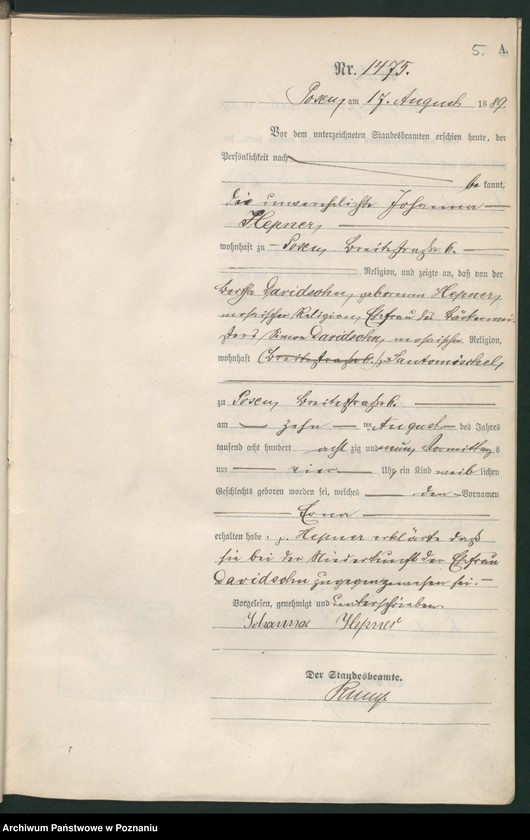 5. A.
Nr. 1475.
Posen, am 17. August 1889
Vor dem unterzeichneten Standesbeamten erschien heute, der
Persönlichkeit nach
be kannt,
die unverehelichte Johanna
Hepner,
wohnhaft zu Posen, Breitestraße 6.
Religion, und zeigte an, daß von der
Bertha Davidsohn, geborenen Hepner,
mosaischer Religion, Ehefrau des
Simon Davidsohn, mosaischer Religion,
wohnhaft (Breitestraße 6.) Santomischel,
zu Posen, Breitestraße 6.
am zehn ten August des Jahres
tausend acht hundert acht zig und neun Vormittag s
um vier Uhr ein Kind weib lichen
Geschlechts geboren worden sei, welches den Vornamen
Erna
erhalten habe. p. Hepner erklärte daß
sie bei der Niederkunft der Ehefrau
Davidsohn zugegen gewesen sei.
Vorgelesen, genehmigt und unterschrieben.
Johanna Hepner
Der Standesbeamte.
Archiwum Państwowe w Poznaniu